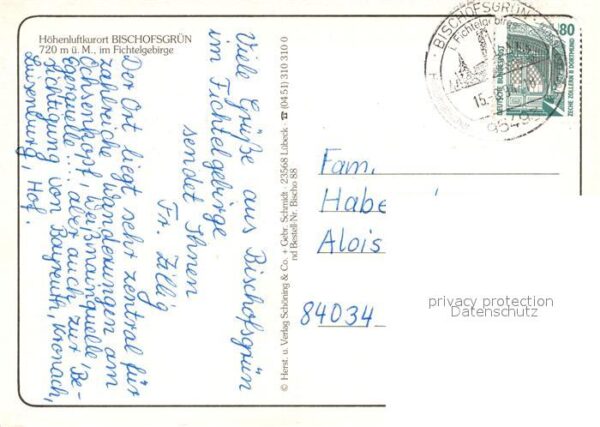 Höhenluftkurort BISCHOFSGRÜN
720 m ü. M., im Fichtelgebirge
Viele Grüße aus Bischofsgrün
im Fichtelgebirge
sendet Ihnen
Fr. Zillig
Der Ort liegt sehr zentral für
zahlreiche Wanderungen am
Ochsenkopf, Weißmainquelle,
Egerquelle... aber auch zur Be-
sichtigung von Bayreuth, Kronach,
Luisenburg, Hof.
© Herst. u. Verlag Schöning & Co. + Gebr. Schmidt · 23568 Lübeck · ☎ (04 51) 310 310 0
nd Bestell-Nr. Bischo 88
BISCHOFSGRÜN
i. Fichtelgebirge
15.
80
DEUTSCHE BUNDESPOST
ZECHE ZOLLERN II DORTMUND
Fam.
Habe
Alois
84034
privacy protection
Datenschutz